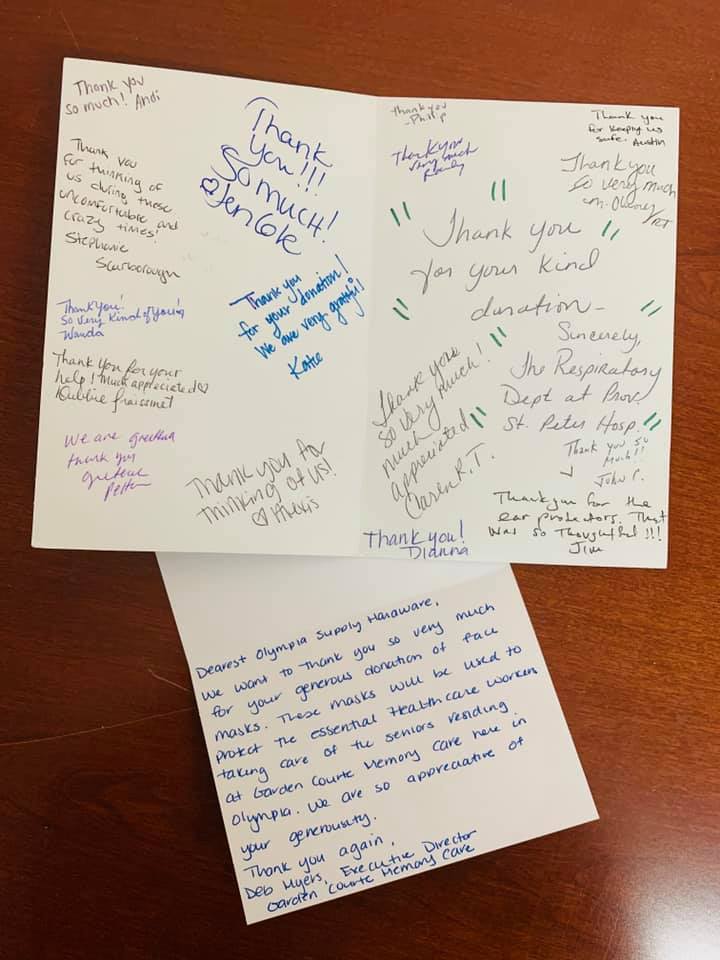 Thank you
so much! Andi
Thank you
for thinking of
us during these
uncomfortable and
crazy times!
Stephanie
Scarborough
Thank you!
So very kind of you!
Wanda
Thank you for your
help! Much appreciated ♡
We are
thank you
Thank
You!!!
So much!
♡ Jen Cole
Thank you
for your donation!
We are very grateful!
Katie
Thank you for
thinking of us!
♡ Alexis
Thank you
-Philip
Thank you
very much
Thank you
for keeping us
safe. Austin
Thank you
so very much
RT
Thank you
for your kind
donation -
Sincerely,
The Respiratory
Dept at Prov.
St. Peter Hosp.
Thank you
so very much!
much
appreciated
R.T.
Thank you so
much!!
John P.
Thank you!
Dianna
Thank you for the
ear protectors. That
was so thoughtful!!!
Jim
Dearest Olympia Supply Hardware,
We want to thank you so very much
for your generous donation of face
masks. These masks will be used to
protect the essential Healthcare workers
taking care of the seniors residing
at Garden Courte Memory Care here in
Olympia. We are so appreciative of
your generousity.
Thank you again,
Deb Myers, Executive Director
Garden Courte Memory Care